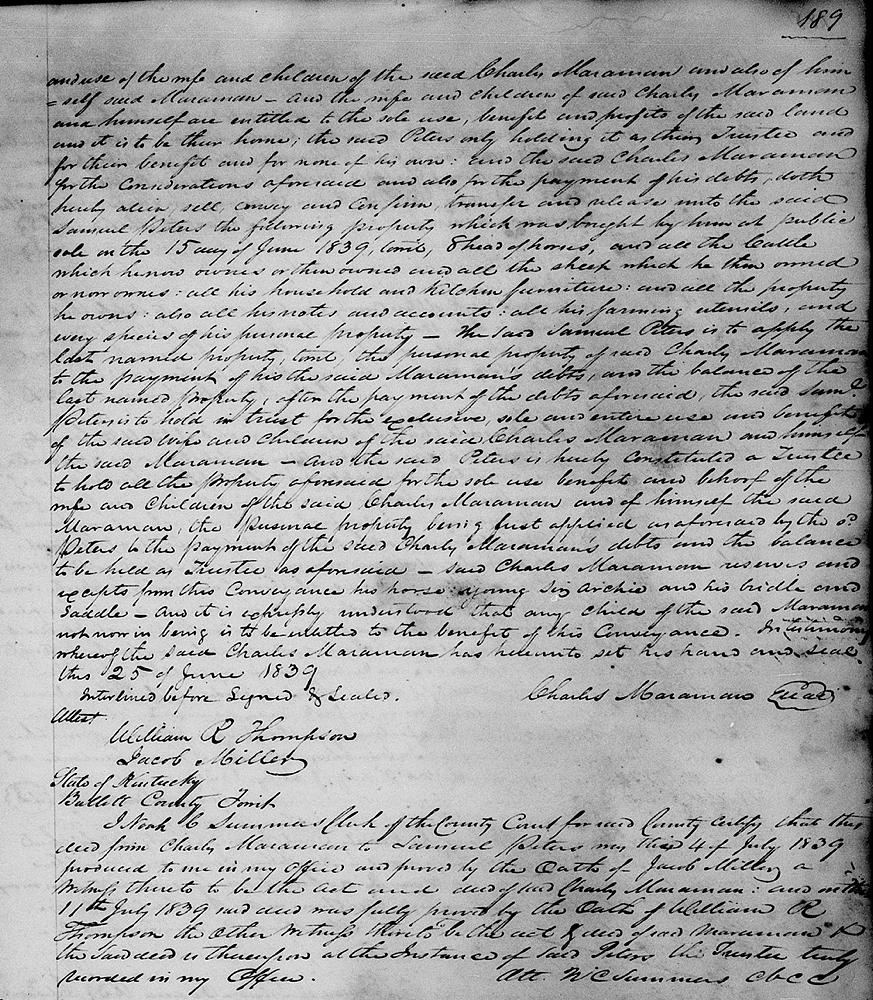 189
and use of the wife and children of the said Charles Maraman and also of him
=self said Maraman - and the wife and children of said Charles Maraman
and himself are entitled to the sole use, benefit and profits of the said land
and it is to be their home; the said Peters only holding it as their Trustee and
for their benefit and for none of his own: and the said Charles Maraman
for the Considerations aforesaid and also for the payment of his debts, doth
hereby alein, sell, convey and Confirm, transfer and release unto the said
Samuel Peters the following property which was bought by him at public
sale on the 15 day of June 1839, towit, 8 head of horses, and all the Cattle
which he now ownes or then owned and all the sheep which he then owned
or now ownes: all his household and kitchen furniture: and all the property
he owns: also all his notes and accounts: all his farming utensils, and
every species of his personal property - The said Samuel Peters is to apply the
last named property, towit, the personal property of said Charles Maraman
to the payment of his the said Maraman's debts, and the balance of the
last named property, after the payment of the debts aforesaid, the said Saml.
Peters is to hold in trust for the exclusive, sole and entire use and benefit
of the said wife and children of the said Charles Maraman and himself
the said Maraman - and the said Peters is hereby Constituted a Trustee
to hold all the property aforesaid for the sole use benefit and behoof of the
wife and Children of the said Charles Maraman and of himself the said
Maraman, the personal property being first applied as aforesaid by the sd
Peters to the payment of the said Charles Maraman's debts and the balance
to be held as Trustee as aforesaid - said Charles Maraman reserves and
excepts from this Conveyance his horse young Sir Archie and his bridle and
Saddle - And it is expressly understood that any child of the said Maraman
not now in being is to be intitled to the benefit of this Conveyance. In testimony
whereof the said Charles Maraman has hereunto set his hand and seal
this 25 of June 1839
Interlined before Signed & Sealed. Charles Maraman (Seal)
Attest
William R Thompson
Jacob Miller
State of Kentucky
Bullett County Towit
I Noah C Summers Clerk of the County Court for said County Certify that this
deed from Charles Maraman to Samuel Peters was this 4 of July 1839
produced to me in my Office and proved by the Oath of Jacob Miller a
Witness thereto to be the act and deed of said Charles Maraman: and on the
11th July 1839 said deed was fully proved by the Oath of William R
Thompson the Other Witness thereto to be the act & deed of said Maraman &
the said deed is thereupon at the Instance of said Peters the Trustee truly
recorded in my Office. Att. N C Summers C b c c